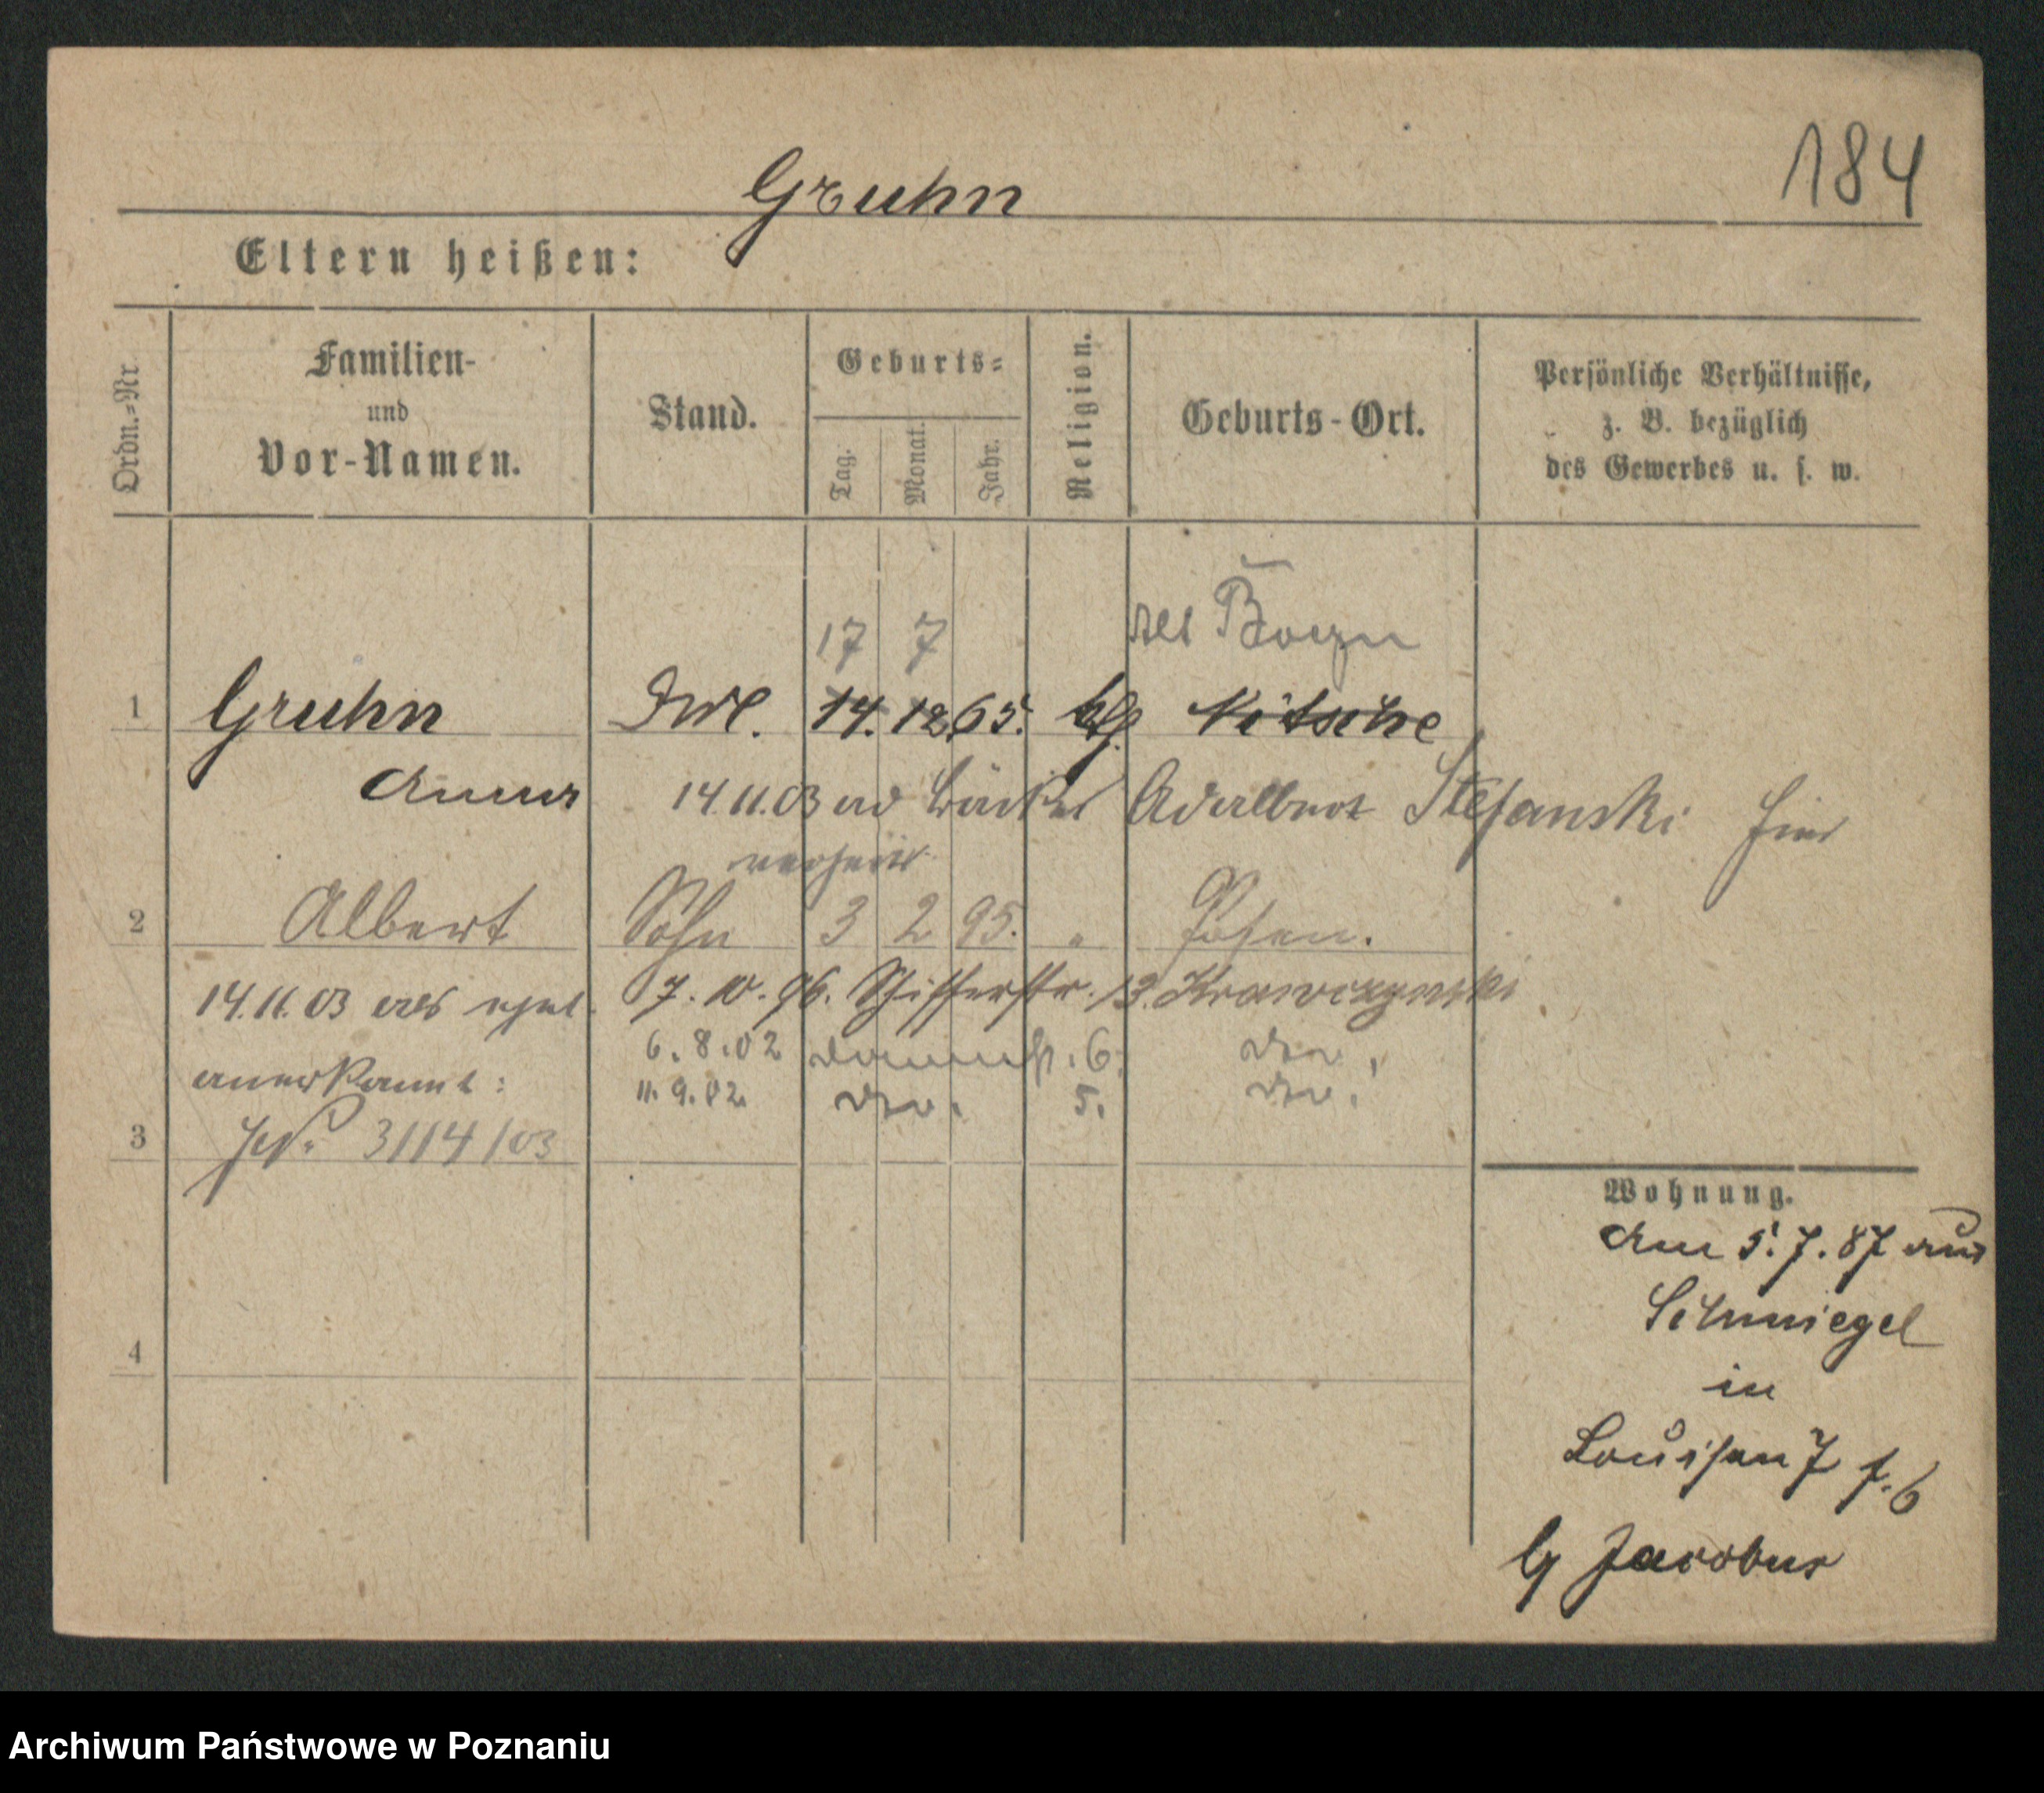 184
Gruhn
Eltern heißen:
Ordn.=Nr
Familien-
und
Vor-Namen.
Stand.
Geburts=
Tag.
Monat.
Jahr.
Religion.
Geburts-Ort.
Persönliche Verhältnisse,
z. B. bezüglich
des Gewerbes u. s. w.
17 7
1 Gruhn 14. 12 65. Nitsche
Anna 14.11.03 Adalbert Stefanski hier
verheir.
2 Albert Sohn 3 2 95. " Posen.
14.11.03 als ehel. 7. 10. 96. Schifferstr. 13. Krawczynski
anerkannt: 6. 8. 02 Dammstr. 6. do.
11. 9. 02. do. 5. do.
3 3114/03
4
Wohnung.
Am 5. 7. 87 aus
Schmiegel
in
Louisen 7
Jacobus
Archiwum Państwowe w Poznaniu